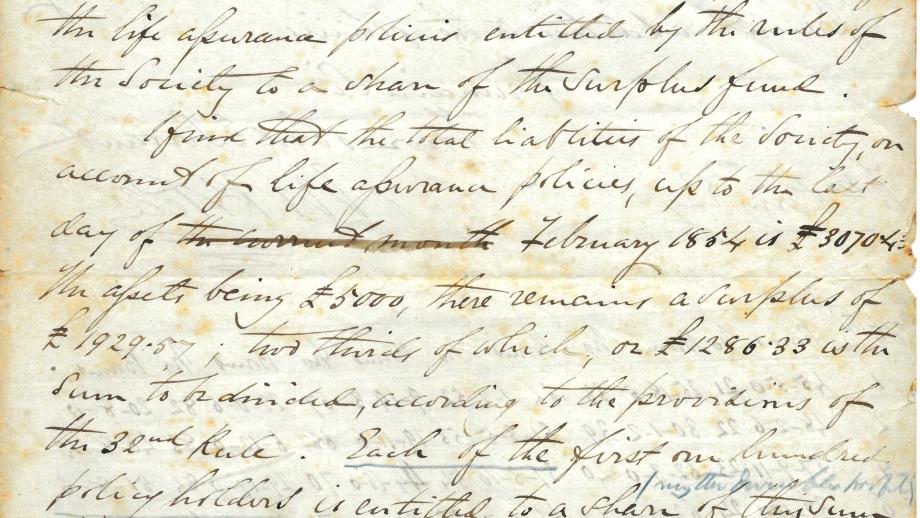 the life assurance policies entitled by the rules of
the Society to a share of the Surplus fund.
I find that the total liabilities of the Society, on
account of life assurance policies, up to the last
day of the current month February 1854 is £3070.4
the assets being £5000, there remains a surplus of
£1929.57; two thirds of which, or £1286.33 is the
Sum to be divided, according to the provisions of
the 32nd Rule. Each of the first one hundred
policy holders is entitled to a share of this Sum